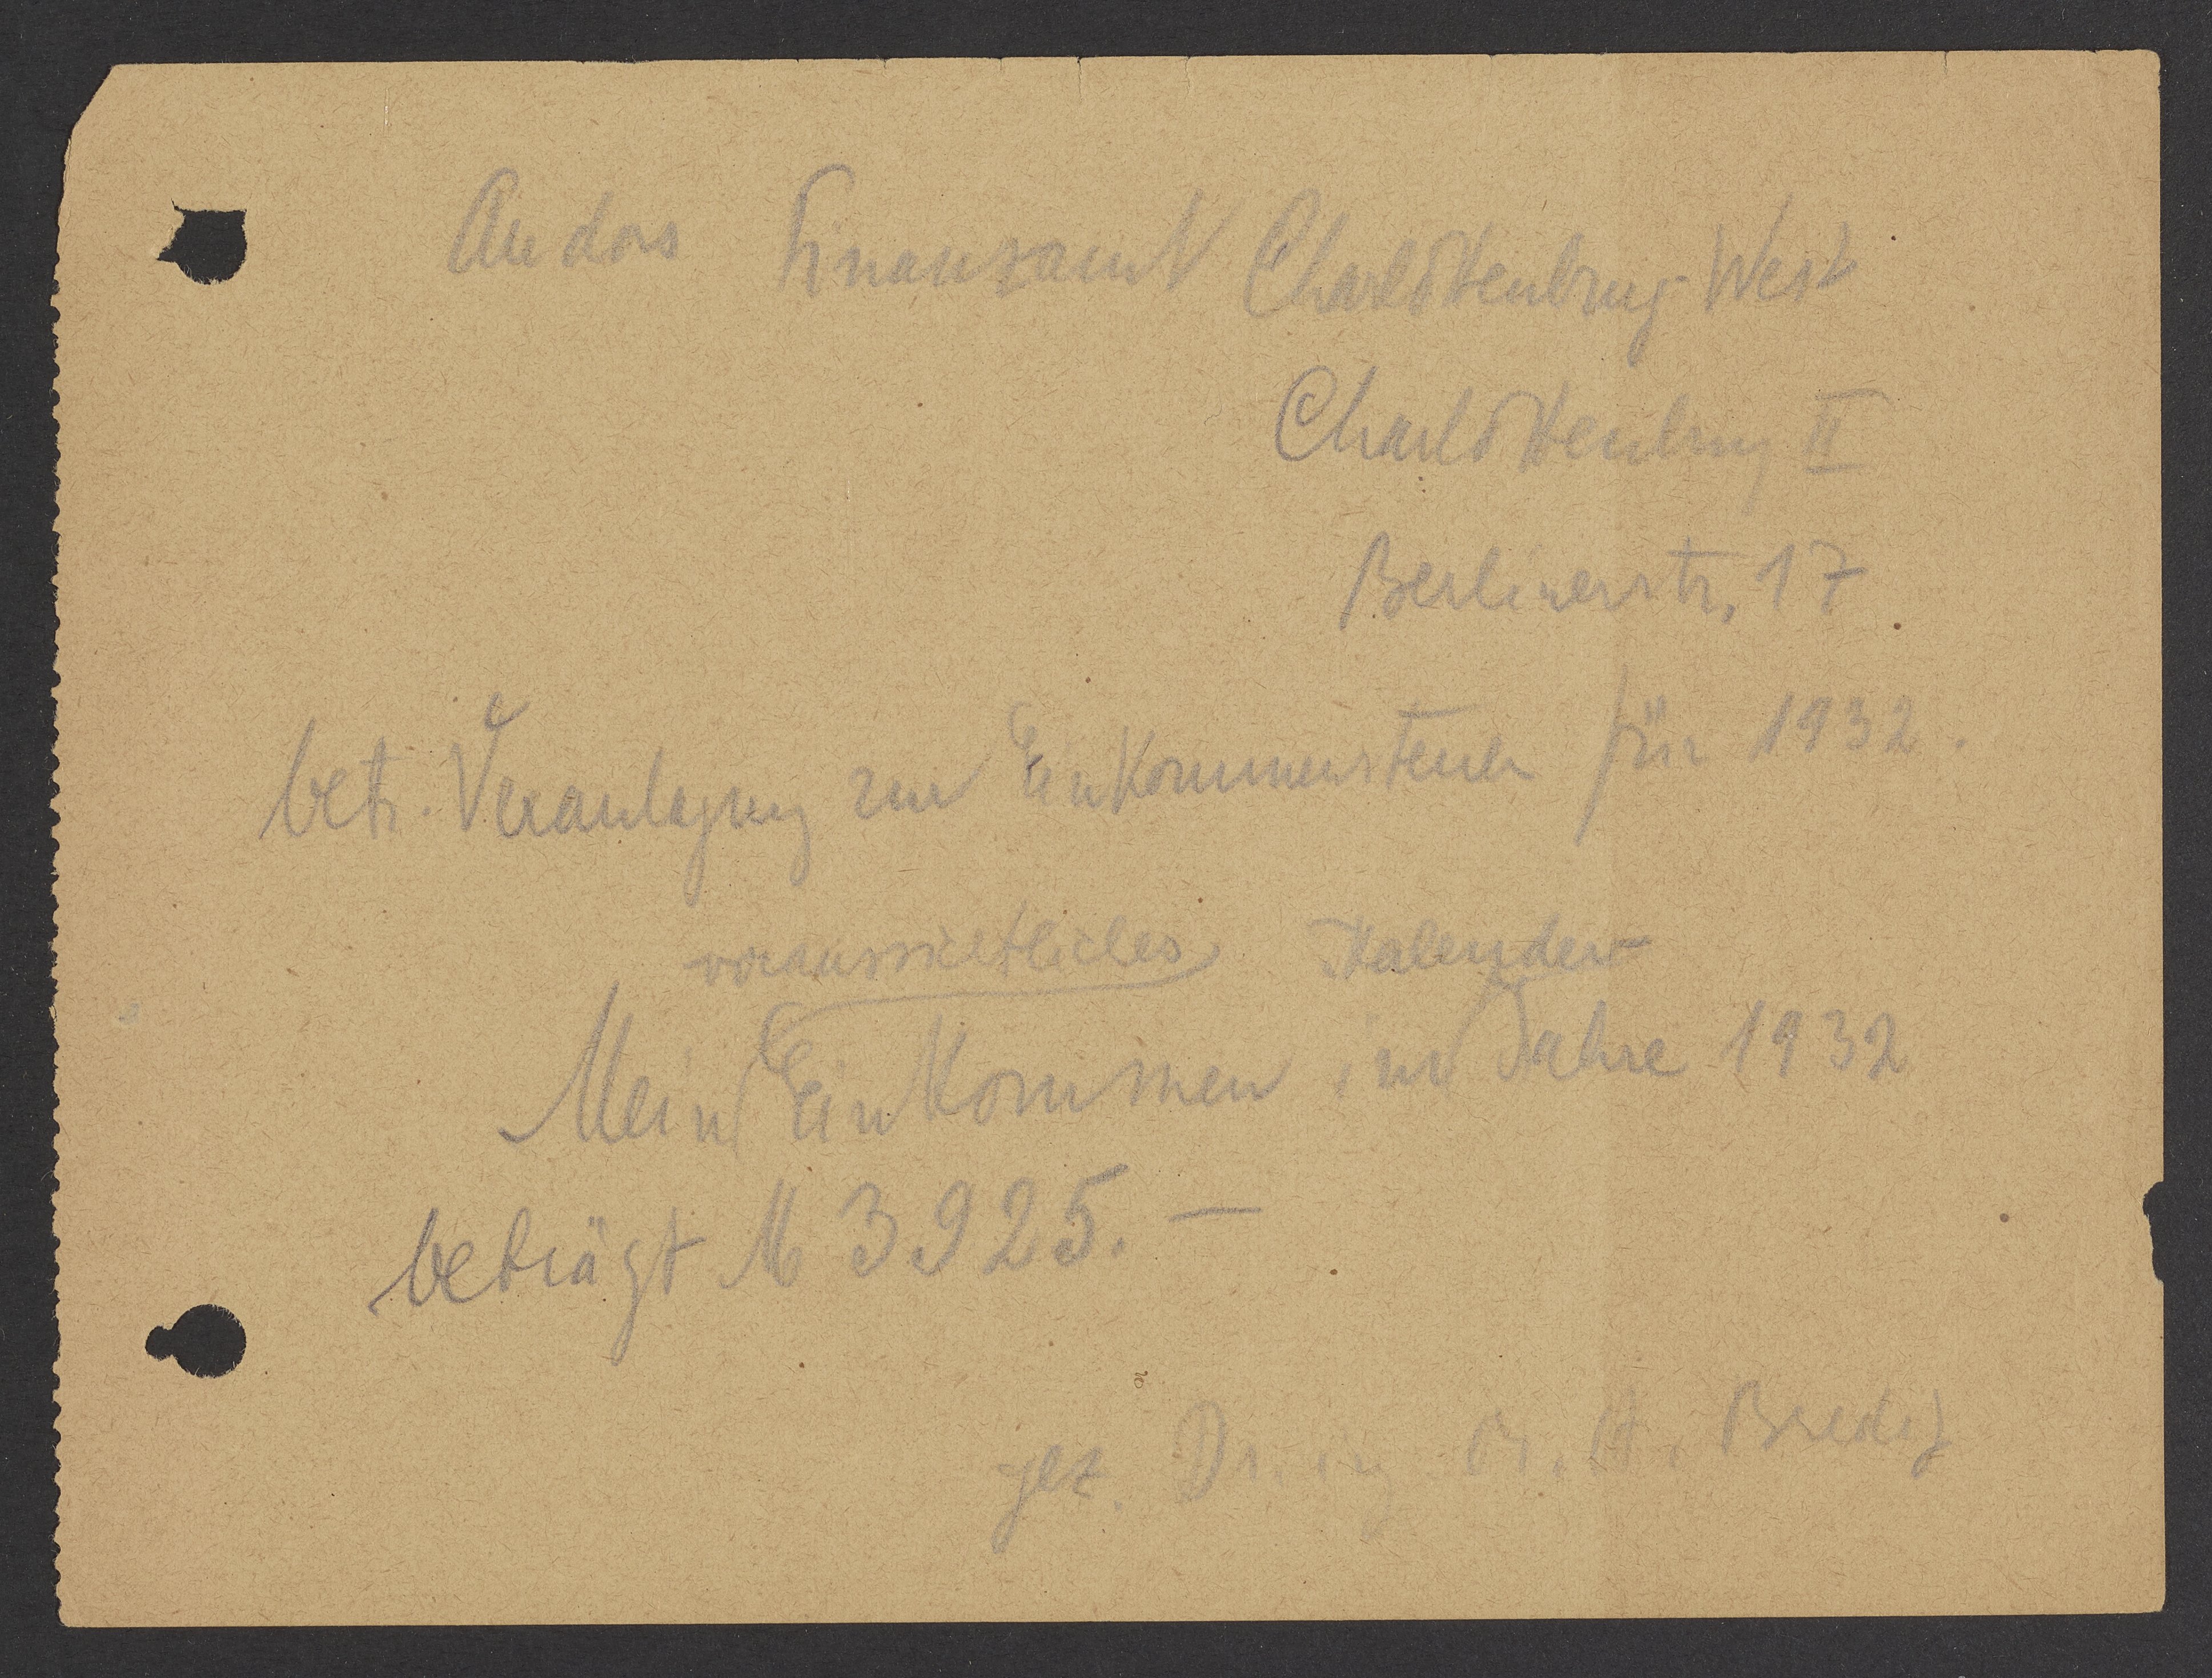 An das Finanzamt Charlottenburg-West
Charlottenburg II
Berlinerstr. 17
betr. Veranlagung zur Einkommensteuer für 1932.
voraussichtliches Kalender-
Mein Einkommen im Jahre 1932
beträgt M 3925.—
gez. Dr. ing M. H. Bredig